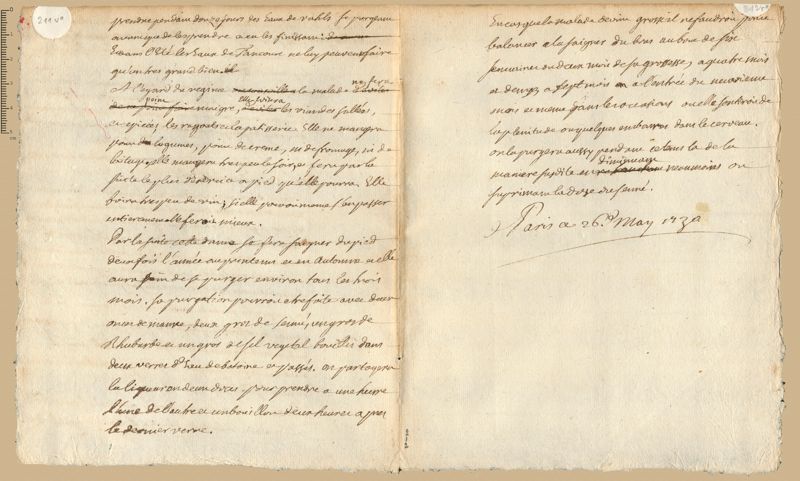 prendre pendant douze jours des Eaux de vahls se purgeant
avant que de les prendre et en les finissant.
Et dans l'Eté les Eaux de Jancourt ne luy peuvent faire
qu'un tres grand bien.
A l'Egard du regime la malade ne fera
point maigre, elle Evitera les viandes sallées,
et epicées les ragouts et la patisserie. Elle ne mangera
point de legumes, point de creme, ni de fromage, ni de
laitage, elle mangera tres peu le soir, et fera par la
suite le plus d'exercice a pied qu'elle pourra. Elle
boira tres peu de vin, si elle pouvoit meme s'en passer
entierement elle feroit mieux.
Par la suite cette dame se fera saigner du pied
deux fois l'année au printems et en Automne et elle
aura soin de se purger environ tous les trois
mois. Sa purgation pourroit etre faite avec deux
onces de manne, deux gros de senné, un gros de
Rhubarbe et un gros de sel vegetal bouillis dans
deux verres d'Eau de et passés. on partagera
la liqueur en deux doses pour prendre a une heure
l'une de l'autre et un bouillon deux heures apres
le dernier verre.
En cas que la malade devint grosse il ne faudroit point
balancer a la saigner du bras au bout de six
semaines ou deux mois de sa grossesse, a quatre mois
et demy, a sept mois et a l'entrée du neuvieme
mois et meme dans les occasions ou elle sentiroit de
la plenitude ou quelques embarras dans le cerveau.
on la purgera aussy pendant ce tems la de la
maniere susdite en diminuant neanmoins ou
suprimant la doze du senné.
a Paris ce 26. May 1730